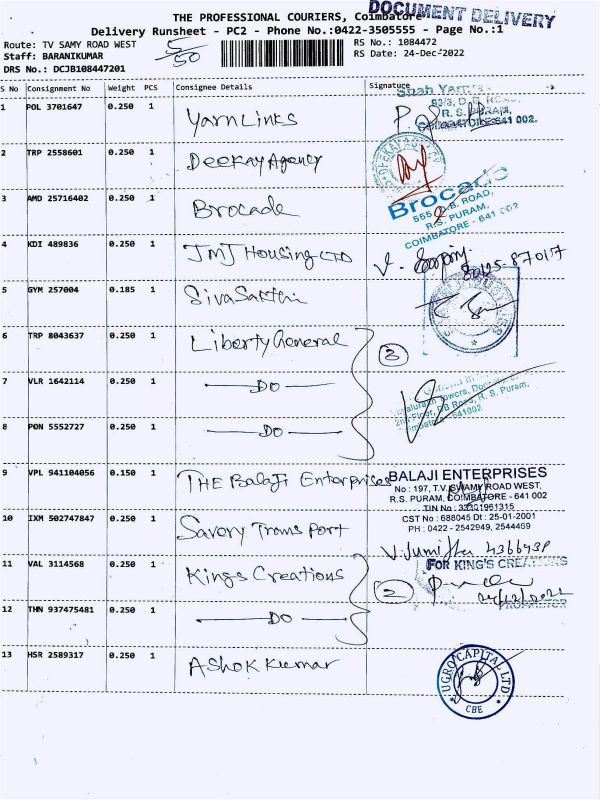 DOCUMENT DELIVERY
THE PROFESSIONAL COURIERS, Coimbatore
Delivery Runsheet - PC2 - Phone No.:0422-3505555 - Page No.:1
Route: TV SAMY ROAD WEST
RS No.: 1084472
Staff: BARANIKUMAR
5/50
RS Date: 24-Dec-2022
DRS No.: DCJB108447201
S No Consignment No Weight PCS Consignee Details Signature
1 POL 3701647 0.250 1 Yarn Links
Shah Yarn
63/3, D.B. ROAD,
R. S. PURAM,
COIMBATORE-641 002.
2 TRP 2558601 0.250 1 Deekay Agency
DEEKAY AGENCY
3 AMD 25716402 0.250 1 Brocade
Brocade
555, D.B. ROAD,
R.S. PURAM,
COIMBATORE - 641 002
4 KDI 489836 0.250 1 JMJ Housing LTD
5 GYM 257004 0.185 1 Siva Sakthi
6 TRP 8043637 0.250 1 Liberty General
3
7 VLR 1642114 0.250 1 DO
2nd Floor, DB Road, R. S. Puram,
Coimbatore - 641002
8 PON 5552727 0.250 1 DO
9 VPL 941104056 0.150 1 THE Balaji Enterprises
BALAJI ENTERPRISES
No : 197, T.V. SWAMY ROAD WEST,
R.S. PURAM, COIMBATORE - 641 002
TIN No : 33301961315
CST No : 688045 Dt : 25-01-2001
PH : 0422 - 2542949, 2544469
10 IXM 502747847 0.250 1 Savory Trans Port
11 VAL 3114568 0.250 1 Kings Creations
2
FOR KING'S CREATIONS
24/12/2022
PROPRIETOR
12 THN 937475481 0.250 1 DO
13 HSR 2589317 0.250 1 Ashok Kumar
UGRO CAPITAL LTD
CBE